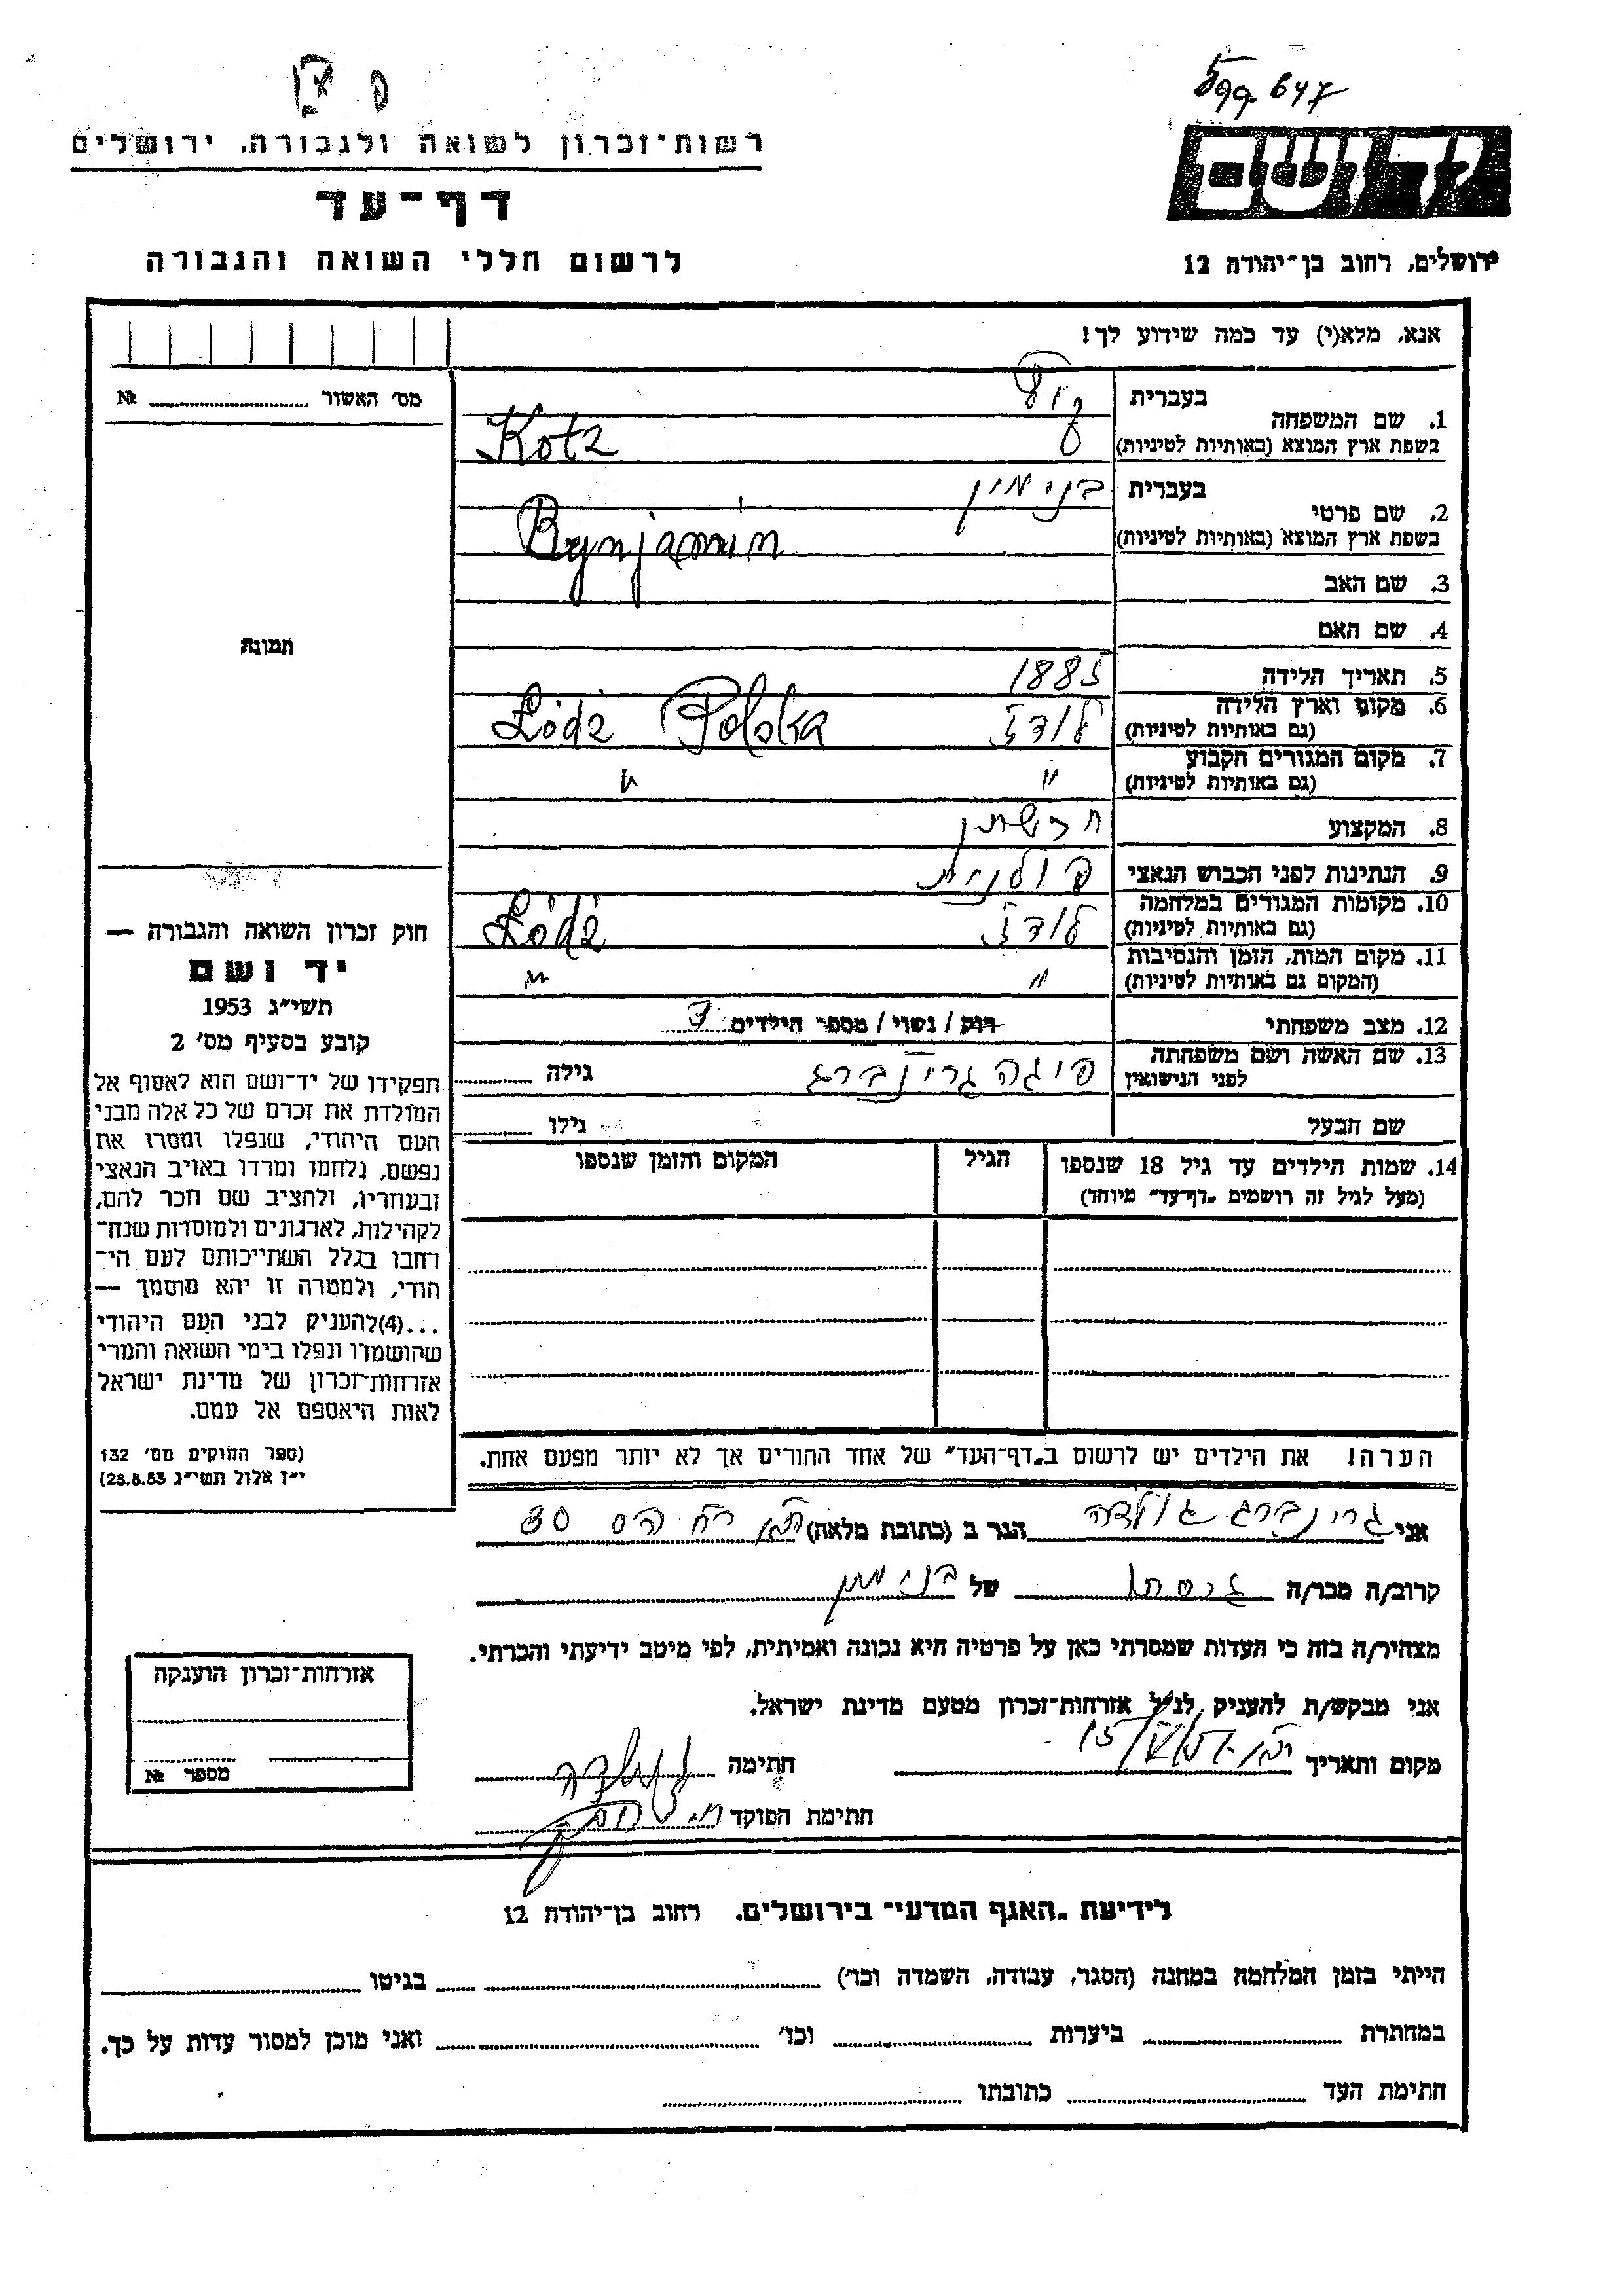 רשות־זכרון לשואה ולגבורה. ירושלים
דף־עד
לרשום חללי השואה והגבורה
ירושלים, רחוב בן־יהודה 12
אנא, מלא(י) עד כמה שידוע לך!
מס׳ האשור № 
תמונה
בעברית
1. שם המשפחה
בשפת ארץ המוצא (באותיות לטיניות) Kotz
בעברית בנימין
2. שם פרטי
בשפת ארץ המוצא (באותיות לטיניות) Bynjamin
3. שם האב
4. שם האם
5. תאריך הלידה 1885
6. מקום וארץ הלידה לודז Łódź Polska
(גם באותיות לטיניות)
7. מקום המגורים הקבוע " "
(גם באותיות לטיניות)
8. המקצוע חרשתן
9. הנתינות לפני הכבוש הנאצי פולנית
10. מקומות המגורים במלחמה לודז Łódź
(גם באותיות לטיניות)
11. מקום המות, הזמן והנסיבות " "
(המקום גם באותיות לטיניות)
12. מצב משפחתי רוק / נשוי / מספר הילדים 3
13. שם האשה ושם משפחתה פיגה גרינברג גילה
לפני הנישואין
שם הבעל גילו
14. שמות הילדים עד גיל 18 שנספו הגיל המקום והזמן שנספו
(מעל לגיל זה רושמים „דף־עד" מיוחד)
הערה! את הילדים יש לרשום ב„דף־העד" של אחד ההורים אך לא יותר מפעם אחת.
חוק זכרון השואה והגבורה —
יד ושם
תשי״ג 1953
קובע בסעיף מס׳ 2
תפקידו של יד־ושם הוא לאסוף אל
המולדת את זכרם של כל אלה מבני
העם היהודי, שנפלו ומסרו את
נפשם, נלחמו ומרדו באויב הנאצי
ובעוזריו, ולהציב שם וזכר להם,
לקהילות, לארגונים ולמוסדות שנח־
רבו בגלל השתייכותם לעם הי־
הודי, ולמטרה זו יהא מוסמך —
...(4) להעניק לבני העם היהודי
שהושמדו ונפלו בימי השואה והמרי
אזרחות־זכרון של מדינת ישראל
לאות היאספם אל עמם.
(ספר החוקים מס׳ 132
י״ז אלול תשי״ג 28.8.53)
אני גרינברג גולדה הגר ב (כתובת מלאה) 30
קרוב/ה מכר/ה גיסתו של בנימין
מצהיר/ה בזה כי העדות שמסרתי כאן על פרטיה היא נכונה ואמיתית, לפי מיטב ידיעתי והכרתי.
אני מבקש/ת להעניק לנ״ל אזרחות־זכרון מטעם מדינת ישראל.
מקום ותאריך חתימה
חתימת הפוקד
אזרחות־זכרון הוענקה
מספר №
לידיעת „האגף המדעי" בירושלים. רחוב בן־יהודה 12
הייתי בזמן המלחמה במחנה (הסגר, עבודה, השמדה וכו׳) בגיטו
במחתרת ביערות וכו׳ ואני מוכן למסור עדות על כך.
חתימת העד כתובתו